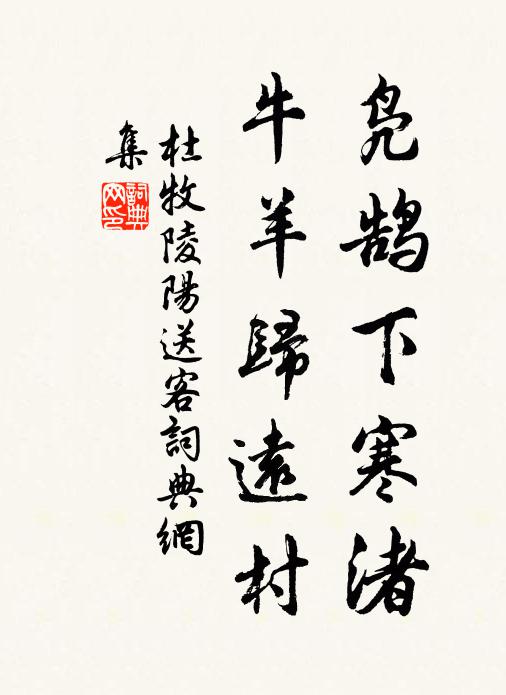 鳧鵠下寒渚
牛羊歸遠村
杜牧陵陽送客詞典網
集
詞典
网印